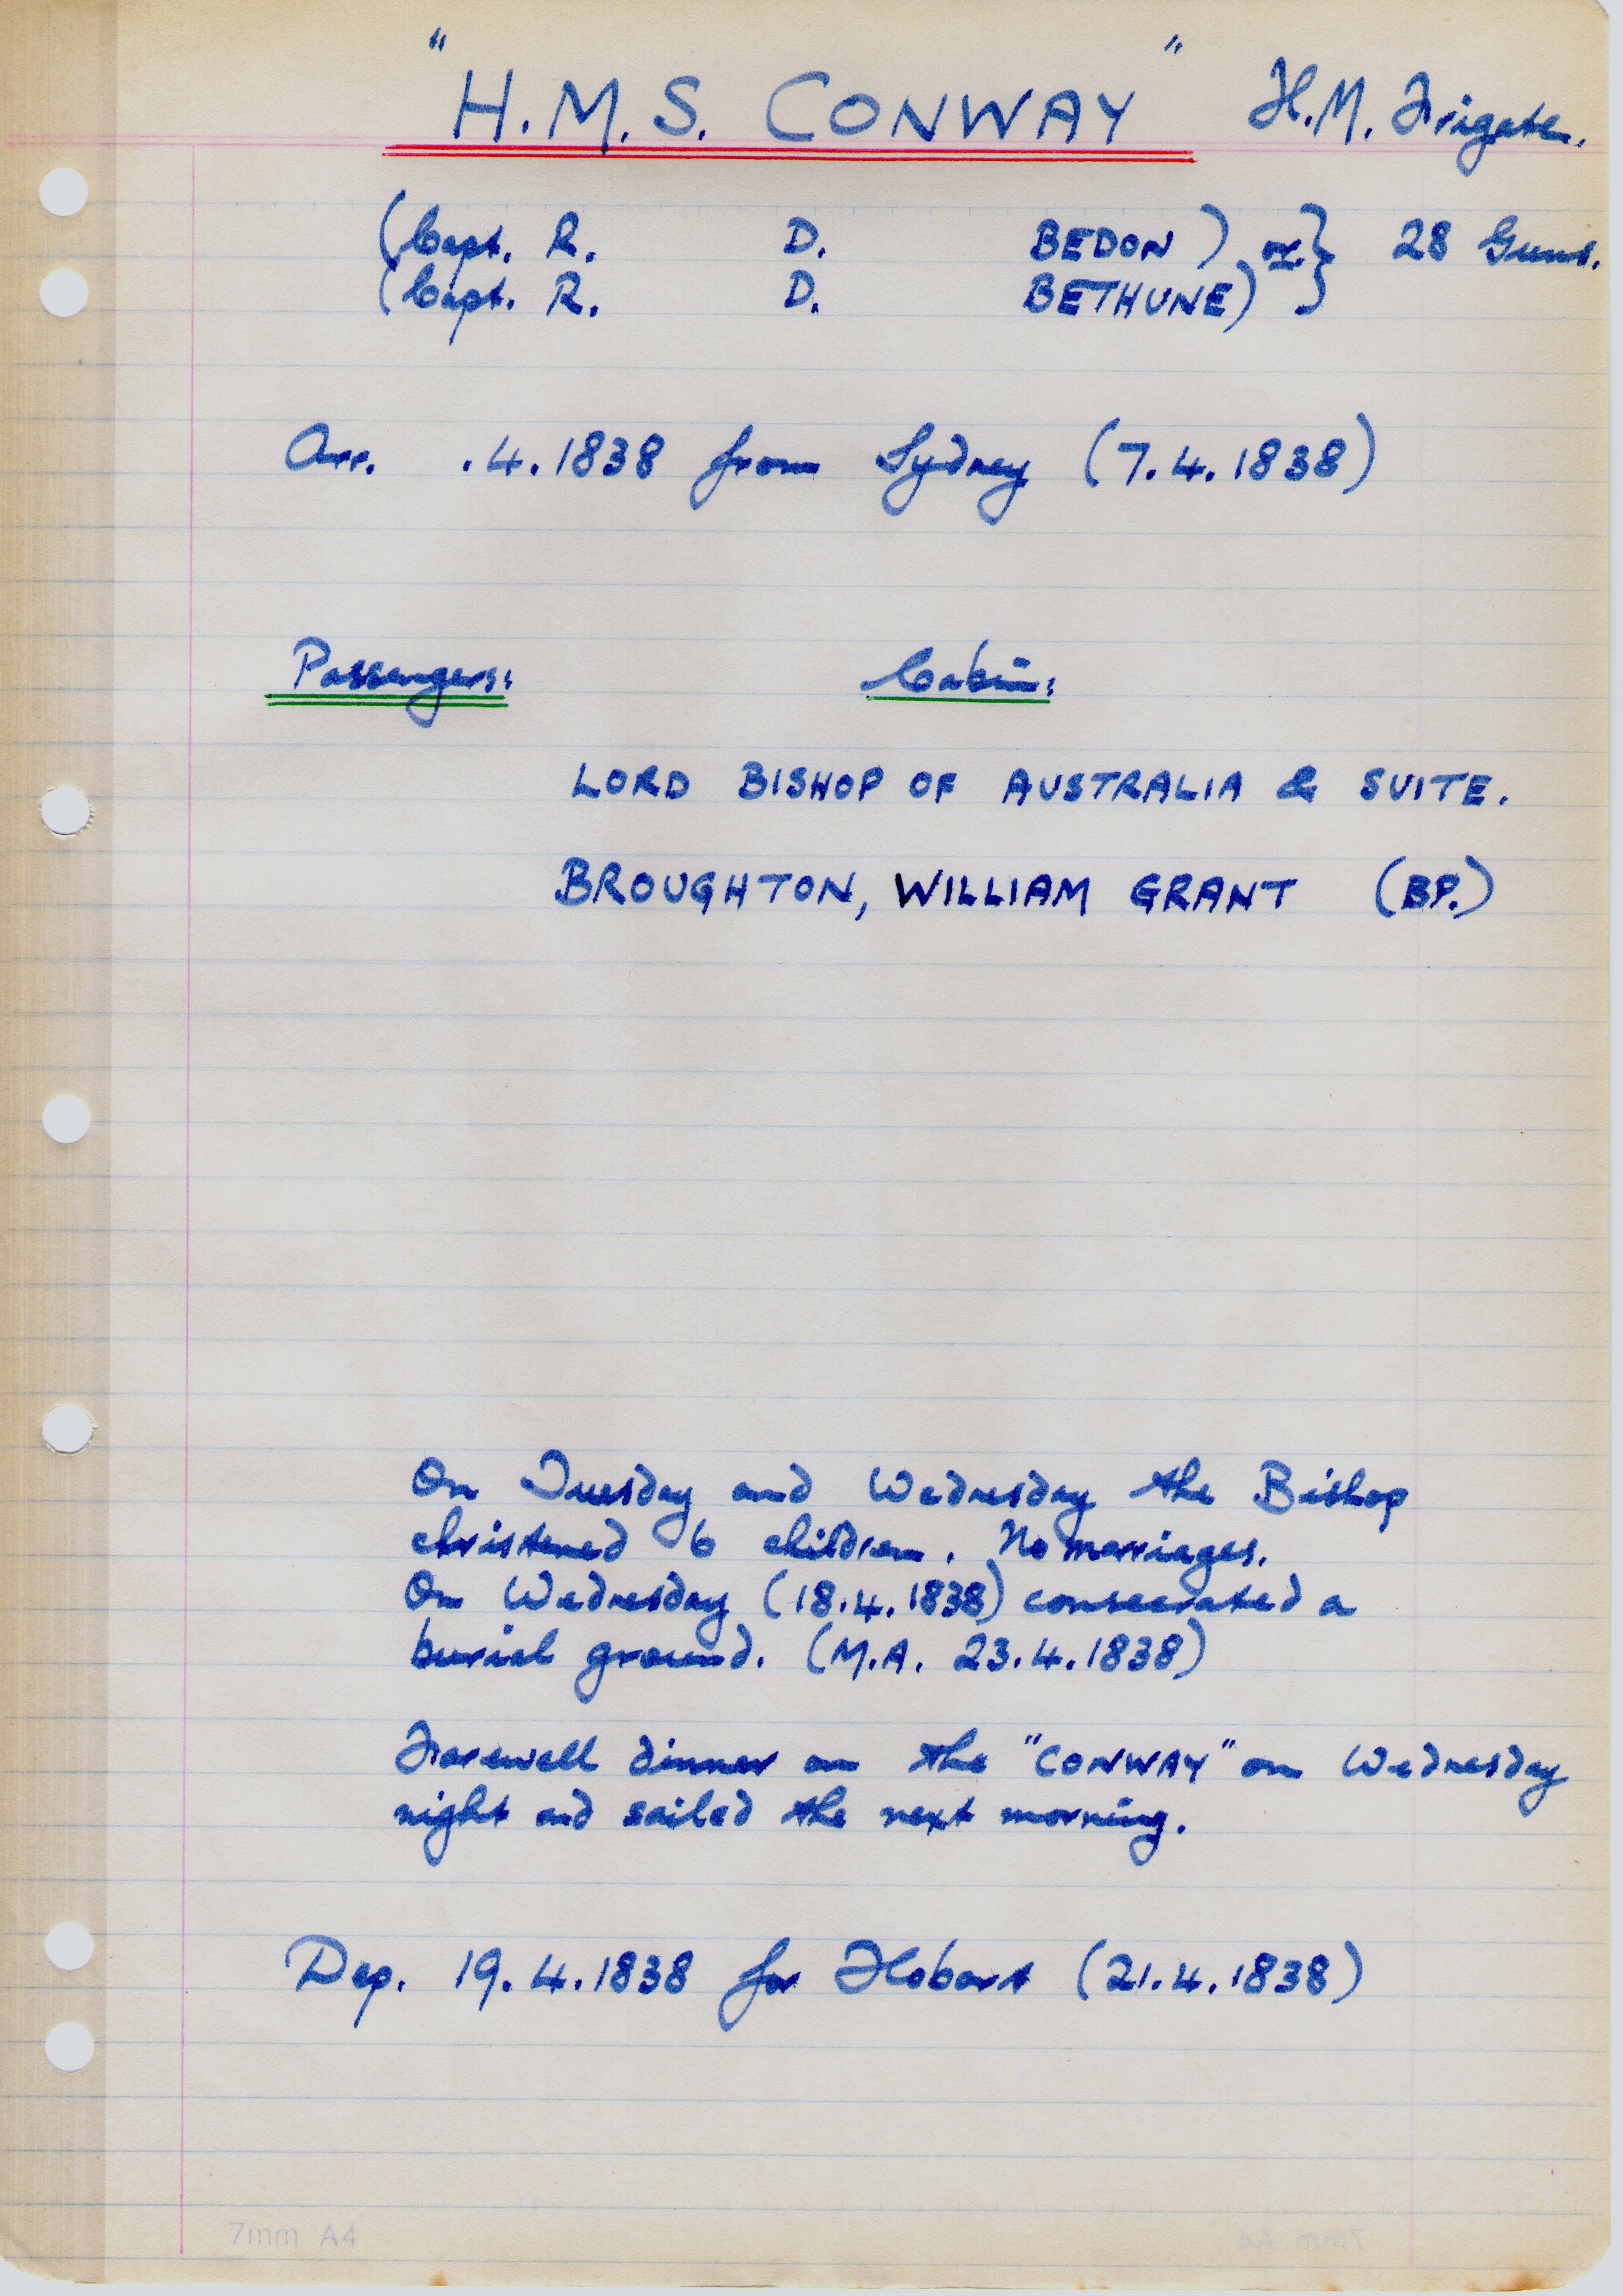 "H.M.S. CONWAY" H.M. Frigate.
(Capt. R. D. BEDON) or } 28 Guns.
(Capt. R. D. BETHUNE) }
Arr. .4.1838 from Sydney (7.4.1838)
Passengers: Cabin:
LORD BISHOP OF AUSTRALIA & SUITE.
BROUGHTON, WILLIAM GRANT (BP.)
On Tuesday and Wednesday the Bishop
christened 6 children. No marriages.
On Wednesday (18.4.1838) consecrated a
burial ground. (M.A. 23.4.1838)
Farewell dinner on the "CONWAY" on Wednesday
night and sailed the next morning.
Dep. 19.4.1838 for Hobart (21.4.1838)
7mm A4